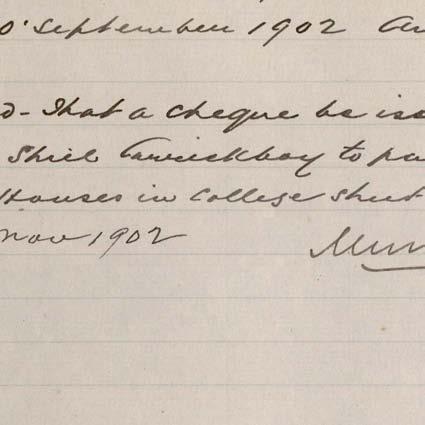 0' September 1902 Au
d - That a cheque be iss
Shiel Carrickboy to pa
Houses in College Street
Nov 1902